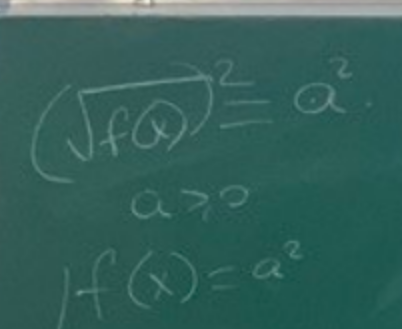 (√f(x))² = a².
a ≥ 0
f(x) = a²